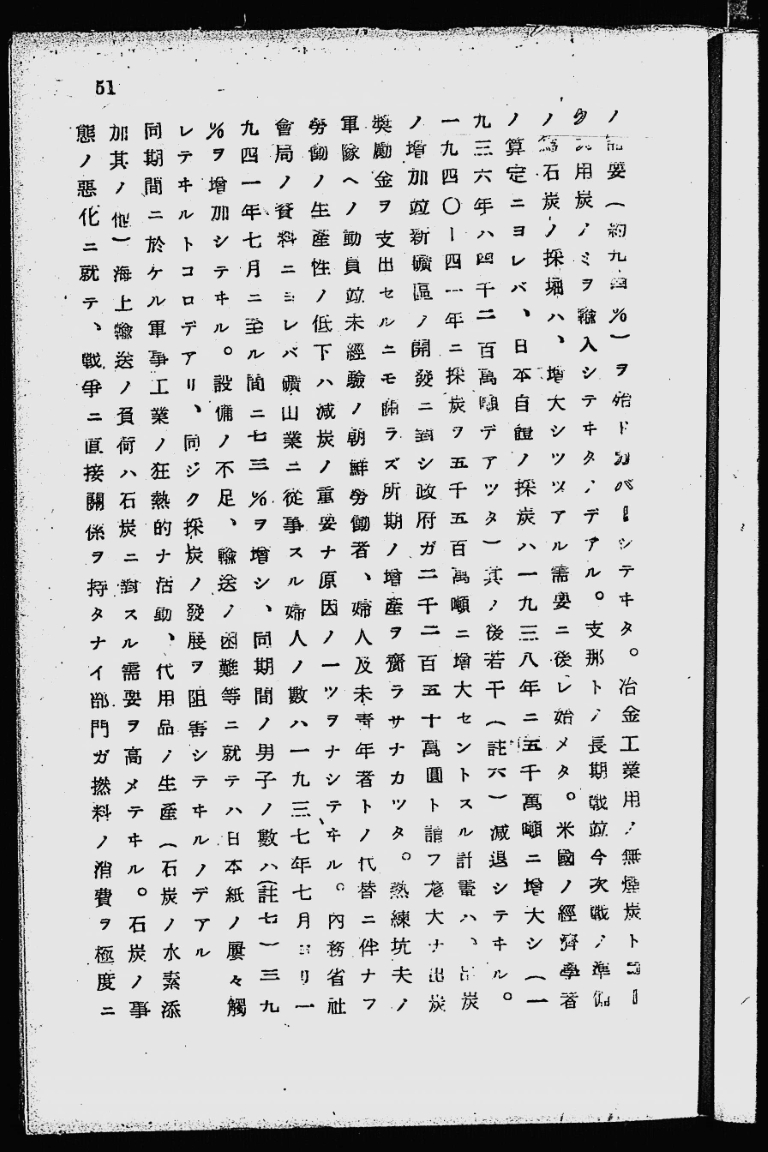 51
ノ需要(約九四%)ヲ始ドカバーシテヰタ。冶金工業用ノ無煙炭トコー
用炭ノミヲ輸入シテヰタノデアル。支那トノ長期戰竝今次戰ノ準備
ノ為石炭ノ採堀ハ、增大シツツアル需要ニ後レ始メタ。米國ノ經濟學者
ノ算定ニヨレバ、日本自體ノ採炭ハ一九三八年ニ五千萬噸ニ增大シ(一
九三六年ハ四千二百萬噸デアツタ)其ノ後若干(註六)減退シテヰル。
一九四〇ー四一年ニ採炭ヲ五千五百萬噸ニ增大セントスル計畫ハ、出炭
ノ增加竝新礦區ノ開發ニ對シ政府ガ二千二百五十萬圓ト謂フ尨大ナ出炭
奬勵金ヲ支出セルニモ關ラズ所期ノ增產ヲ齎ラサナカツタ。熟練坑夫ノ
軍隊ヘノ動員竝未經驗ノ朝鮮勞働者、婦人及未靑年者トノ代替ニ伴ナフ
勞働ノ生產性ノ低下ハ減炭ノ重要ナ原因ノ一ツヲナシテヰル。內務省社
會局ノ資料ニヨレバ礦山業ニ從事スル婦人ノ數ハ一九三七年七月ヨリ一
九四一年七月ニ至ル間ニ七三%ヲ增シ、同期間ノ男子ノ數ハ(註七)三九
%ヲ增加シテヰル。設備ノ不足、輸送ノ困難等ニ就テハ日本紙ノ屢々觸
レテヰルトコロデアリ、同ジク採炭ノ發展ヲ阻害シテヰルノデアル
同期間ニ於ケル軍事工業ノ狂熱的ナ活動、代用品ノ生產(石炭ノ水素添
加其ノ他)海上輸送ノ負荷ハ石炭ニ對スル需要ヲ高メテヰル。石炭ノ事
態ノ惡化ニ就テ、戰爭ニ直接關係ヲ持タナイ部門ガ撚料ノ消費ヲ極度ニ